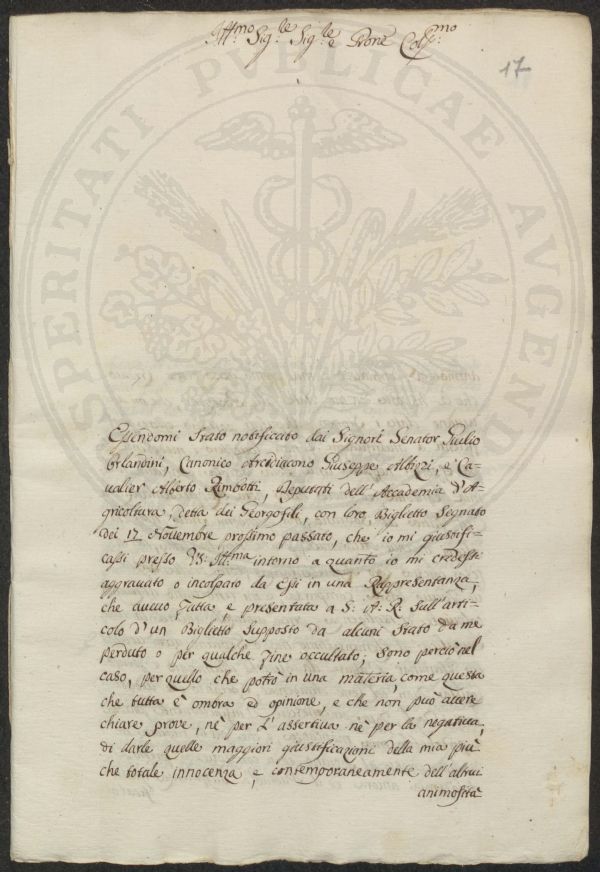 Ill.mo Sig.re Sig.re e Prone Col.mo
17
PROSPERITATI PVBLICAE AVGENDAE
Essendomi stato notificato dai Signori Senator Giulio
Orlandini, Canonico Arcidiacono Giuseppe Albizi, e Ca-
valier Alberto Rimbotti, Deputati dell'Accademia d'A-
gricoltura, detta dei Georgofili, con loro Biglietto segnato
dei 17. Novembre prossimo passato, che io mi giustifi-
cassi presso VS: Ill.ma intorno a quanto io mi credessi
aggravato o incolpato da essi in una Rappresentanza,
che avevo fatta, e presentata a S: A: R: sull'arti-
colo d'un Biglietto supposto da alcuni stato da me
perduto o per qualche fine occultato; sono perciò nel
caso, per quello che potrò in una materia, come questa
che tutta è ombra ed opinione, e che non può avere
chiare prove, nè per l'assertiva nè per la negativa,
di darle quelle maggiori giustificazioni della mia più
che totale innocenza, e contemporaneamente dell'altrui
animosità